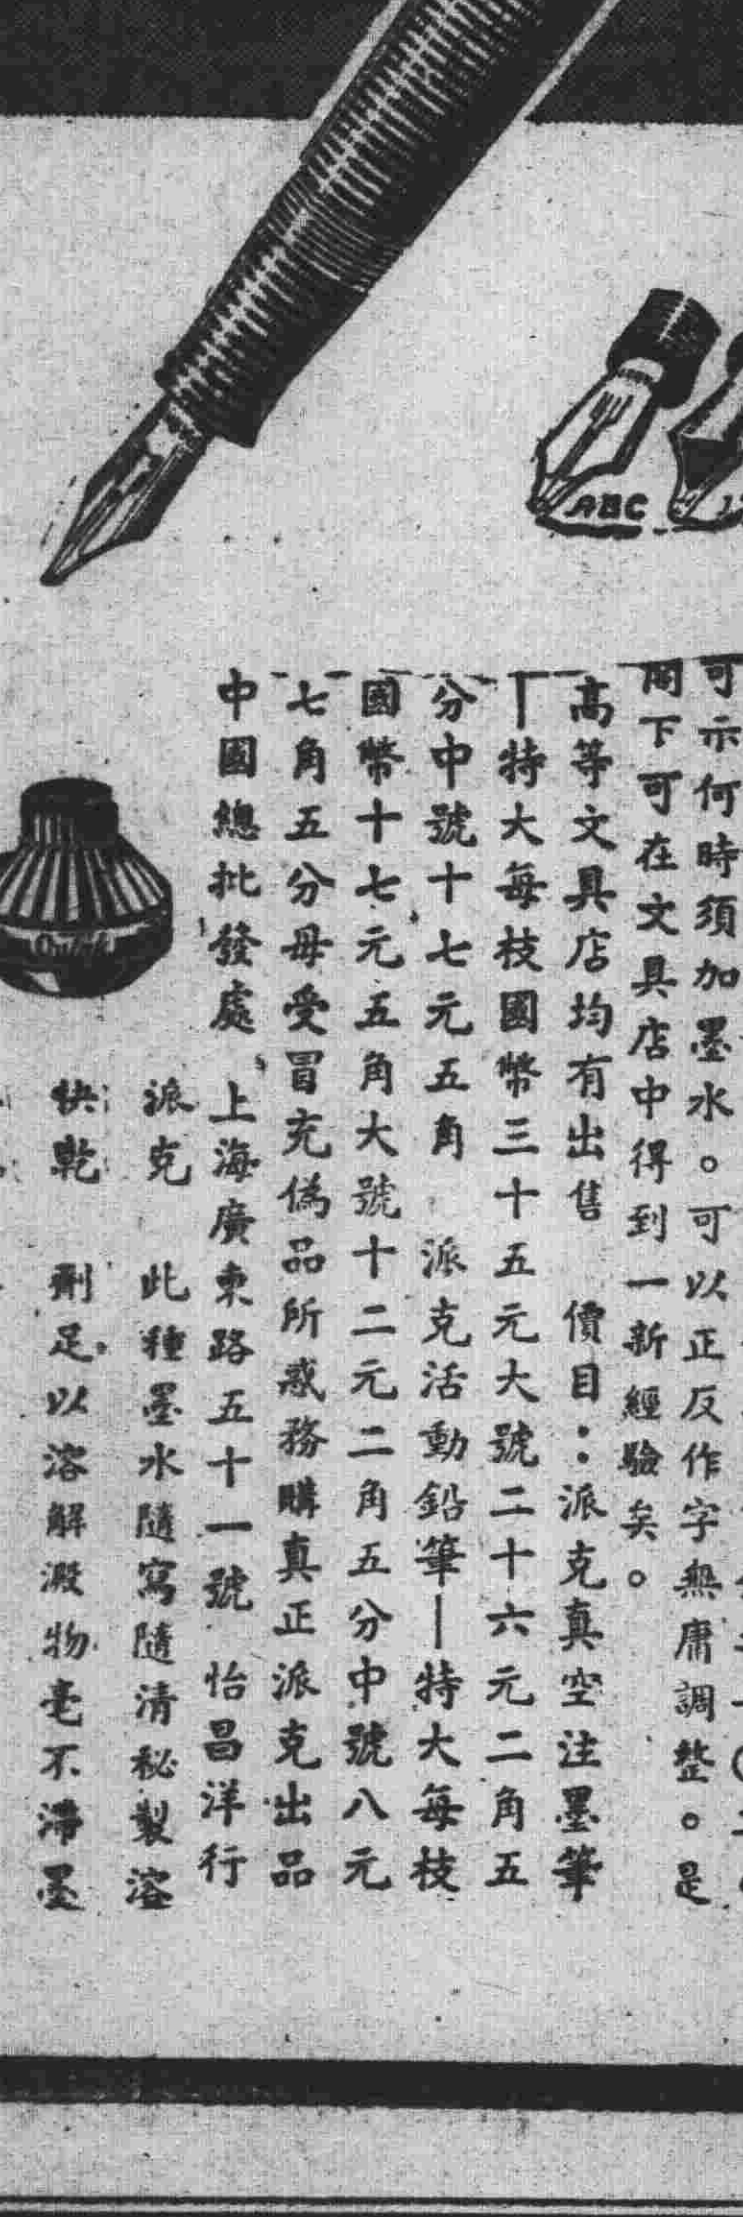 ABC
可示何時須加墨水。可以正反作字無庸調整。是
閣下可在文具店中得到一新經驗矣。
高等文具店均有出售 價目：派克真空注墨筆
—特大每枝國幣三十五元大號二十六元二角五
分中號十七元五角 派克活動鉛筆—特大每枝
國幣十七元五角大號十二元二角五分中號八元
七角五分毋受冒充偽品所惑務購真正派克出品
中國總批發處 上海廣東路五十一號 怡昌洋行
Quink
派克 此種墨水隨寫隨清秘製溶
快乾 劑足以溶解澱物毫不滯墨